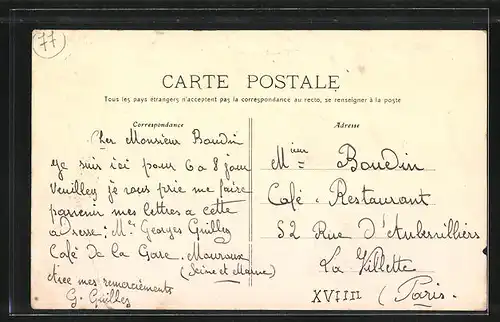 77
CARTE POSTALE
Tous les pays étrangers n'acceptent pas la correspondance au recto, se renseigner à la poste
Correspondance
Cher Monsieur Boudin
je suis ici pour 6 a 8 jour
veuilley je vous prie me faire
parvenir mes lettres a cette
adresse: Mr Georges Guilley
Café De la Gare. Mouroux
(Seine et Marne)
Avec mes remerciements
G. Guilley
Adresse
Mieur Boudin
Café. Restaurant
52 Rue D'Aubervilliers
La Villette
XVIIII (Paris.